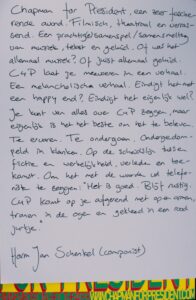 Chapman for President, een zeer fascine-
rende avond. Filmisch, theatraal en verras-
send. Een prachtige samenspel / samensmelting
van muziek, tekst en geluid. Of was het
allemaal muziek? Of juist allemaal geluid.
C4P laat je meevoeren in een verhaal.
Een melancholische verhaal. Eindigt het met
een happy end? Eindigt het eigenlijk wel?
Je kunt van alles over C4P zeggen, maar
eigenlijk is het het beste om het te beleven.
Te ervaren. Te ondergaan. Ondergedom-
peld in klanken. Op de scheidslijn tussen
fictie en werkelijkheid, verleden en toe-
komst. Om het met de woorden uit telefo-
niste te zeggen: "Het is goed. Blijf rustig.
C4P komt op je afgerend met open armen,
tranen in de ogen en gekleed in een rood
jurkje.
Harm Jan Schenkel (componist)
WWW.CHAPMANFORPRESIDENT.COM